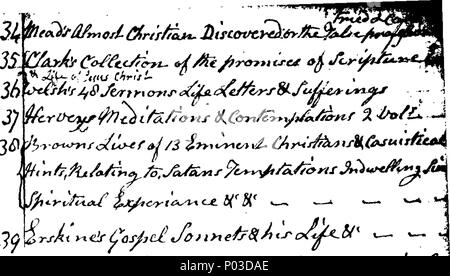 Tried & Ca
34 Mead's Almost Christian Discovered or the False professor
35 Clark's Collection of the promises of Scripture
& Life of Jesus Christ
36 Welsh's 48 Sermons Life Letters & Sufferings
37 Herveys Meditations & Contemplations 2 Vols —
38 Browns Lives of 13 Eminent Christians & Casuistical
Hints, Relating to, Satans Temptations Indwelling Sin
Spiritual Experience &c &c — — — —
39 Erskine's Gospel Sonnets & his Life &c — — —
alamy
Image ID: P03DAE
www.alamy.com